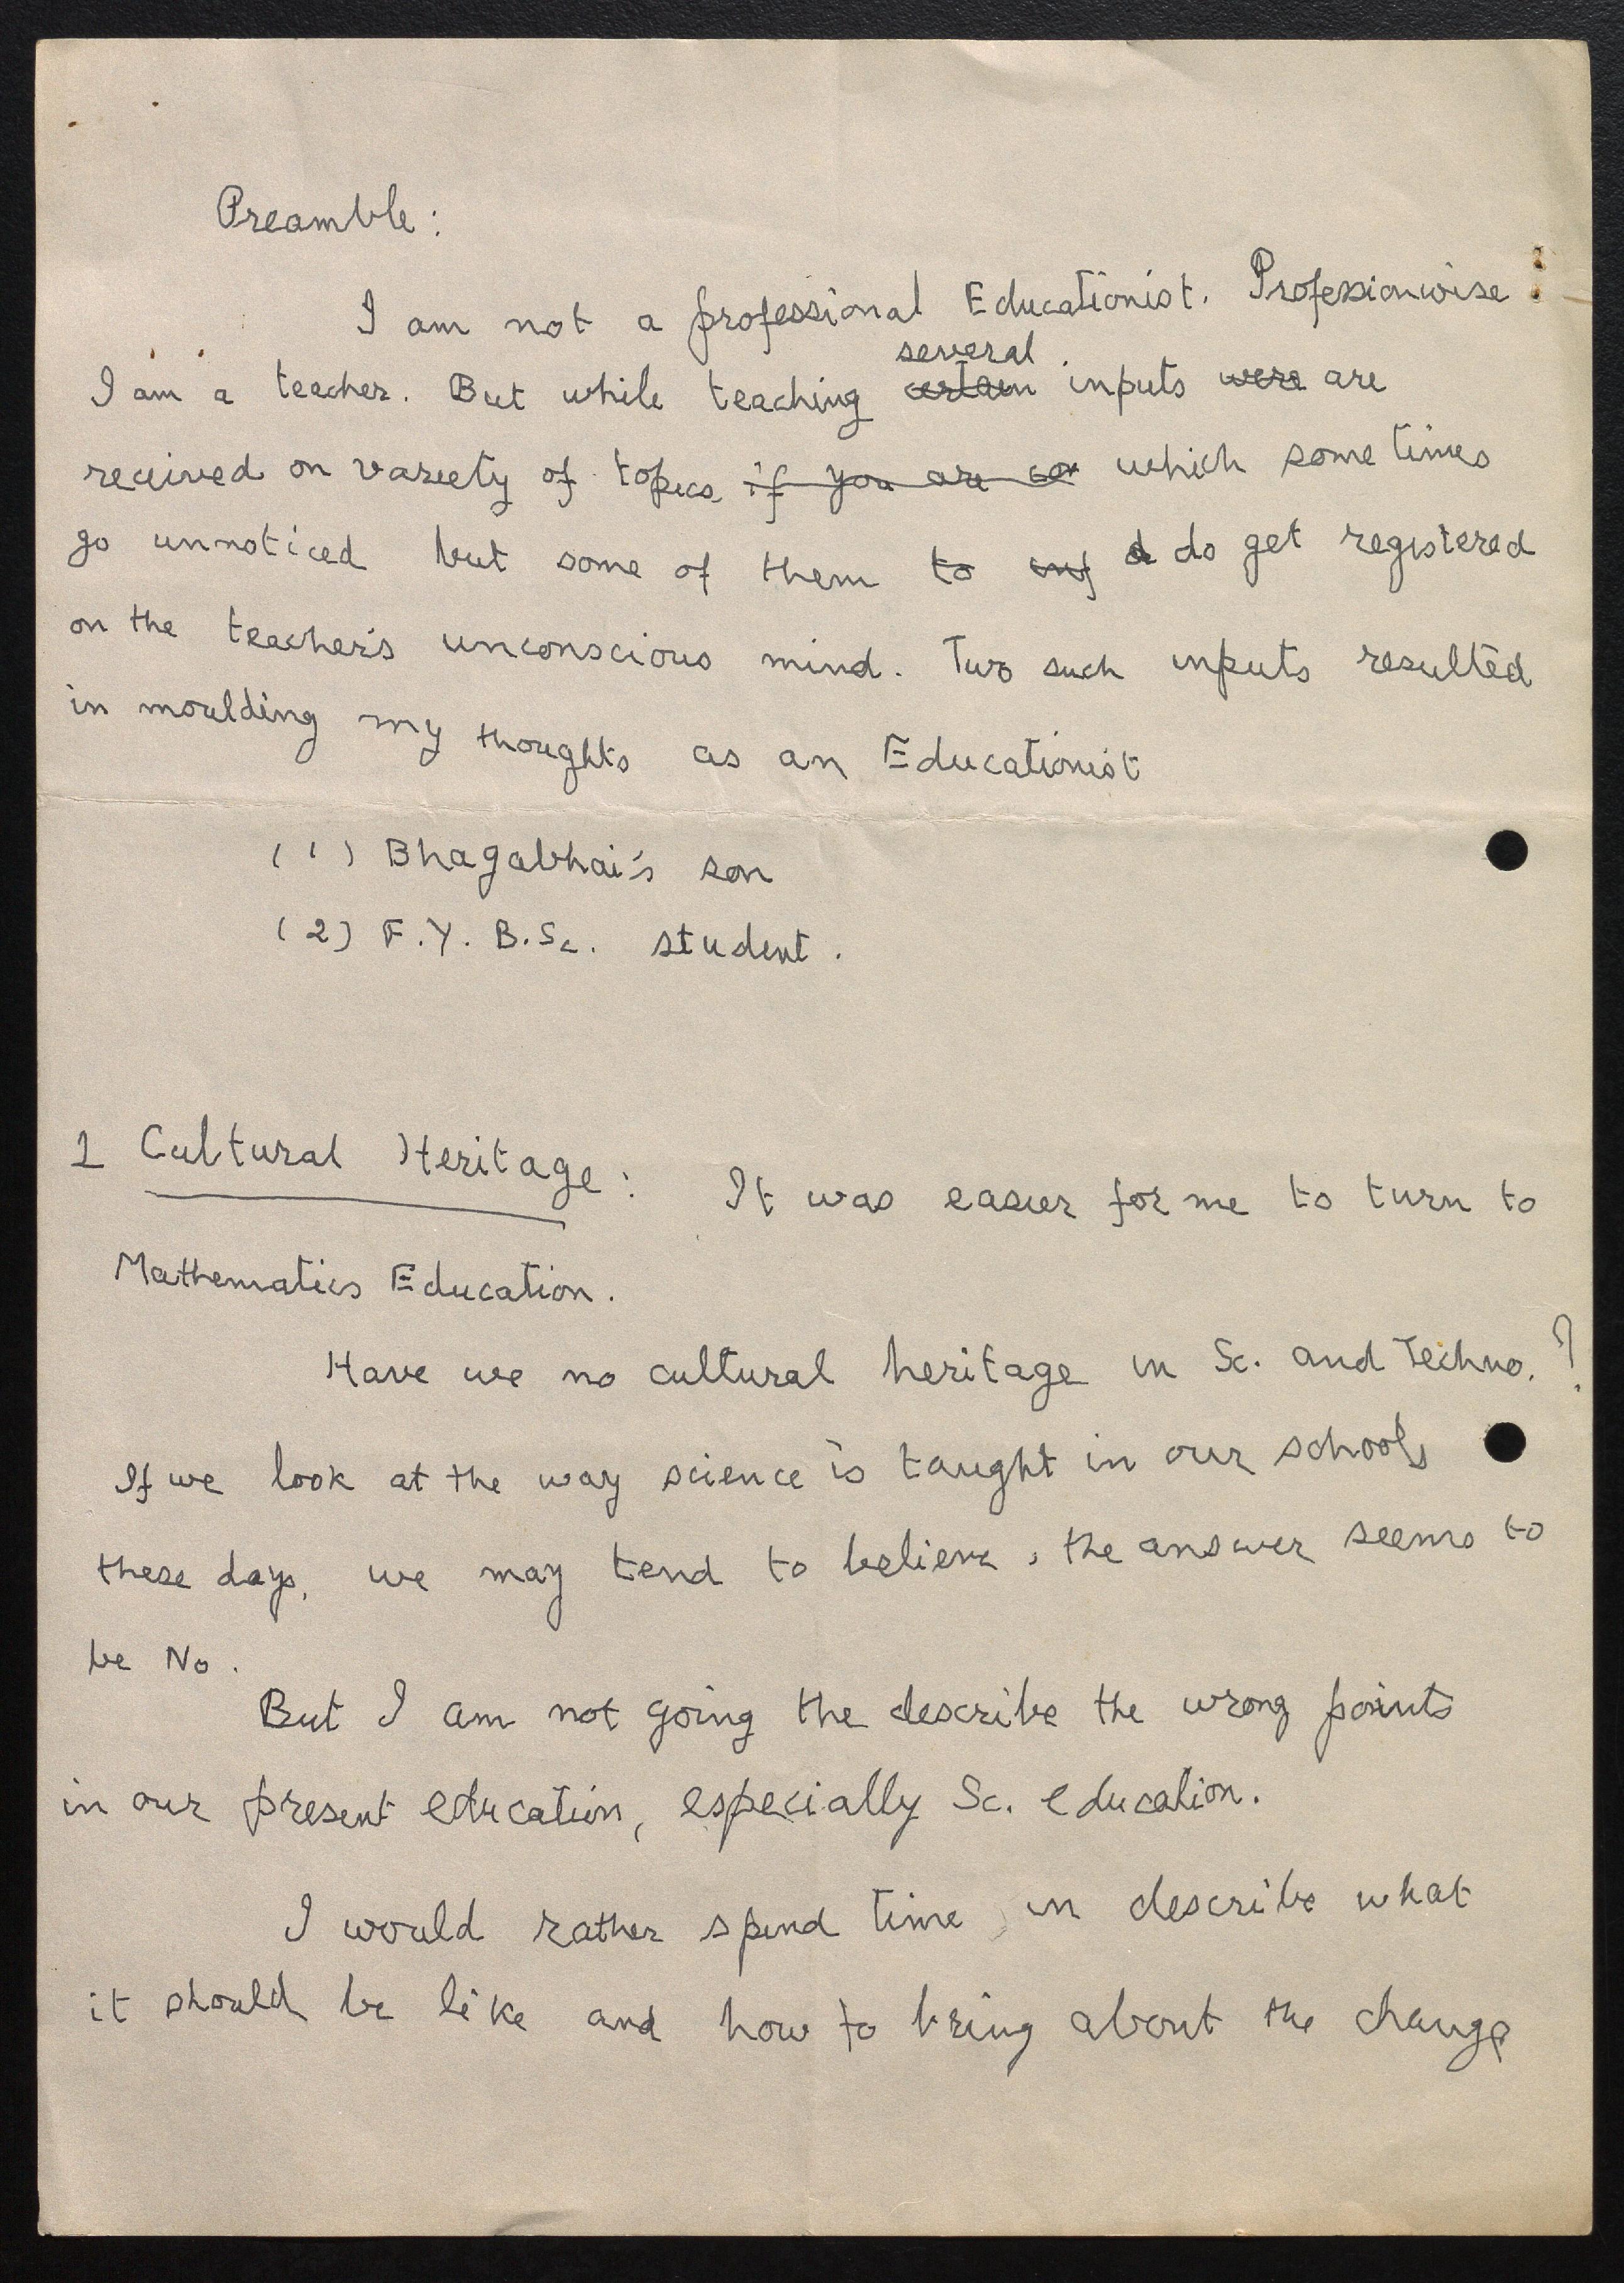 Preamble:
I am not a professional Educationist. Professionwise
I am a teacher. But while teaching several inputs are
received on variety of topics which some times
go unnoticed but some of them do get registered
on the teacher's unconscious mind. Two such inputs resulted
in moulding my thoughts as an Educationist
(1) Bhagabhai's son
(2) F.Y. B.Sc. student.
1 Cultural Heritage: It was easier for me to turn to
Mathematics Education.
Have we no cultural heritage in Sc. and Techno.?
If we look at the way science is taught in our schools
these days, we may tend to believe, the answer seems to
be No.
But I am not going the describe the wrong points
in our present education, especially Sc. education.
I would rather spend time in describe what
it should be like and how to bring about the change